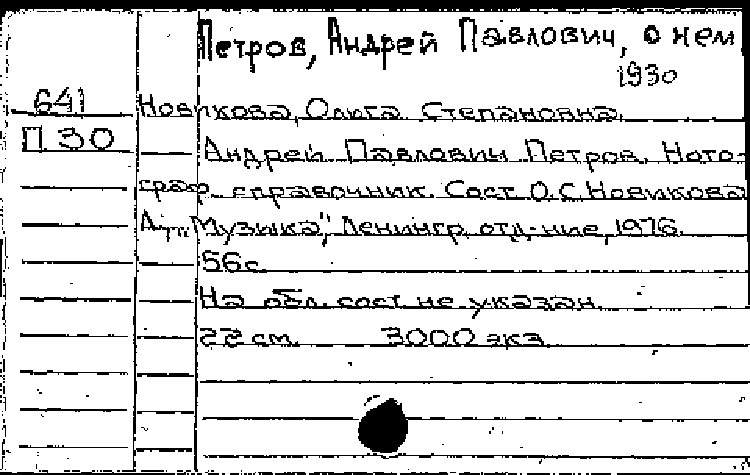 Петров, Андрей Павлович, о нем
1930
641 Новикова, Ольга Степановна.
П 30 Андрей Павлович Петров. Ното-
граф. справочник. Сост. О.С. Новикова
Л., "Музыка", Ленингр. отд-ние, 1976.
56 с.
На обл. сост. не указан.
22 см. 3000 экз.